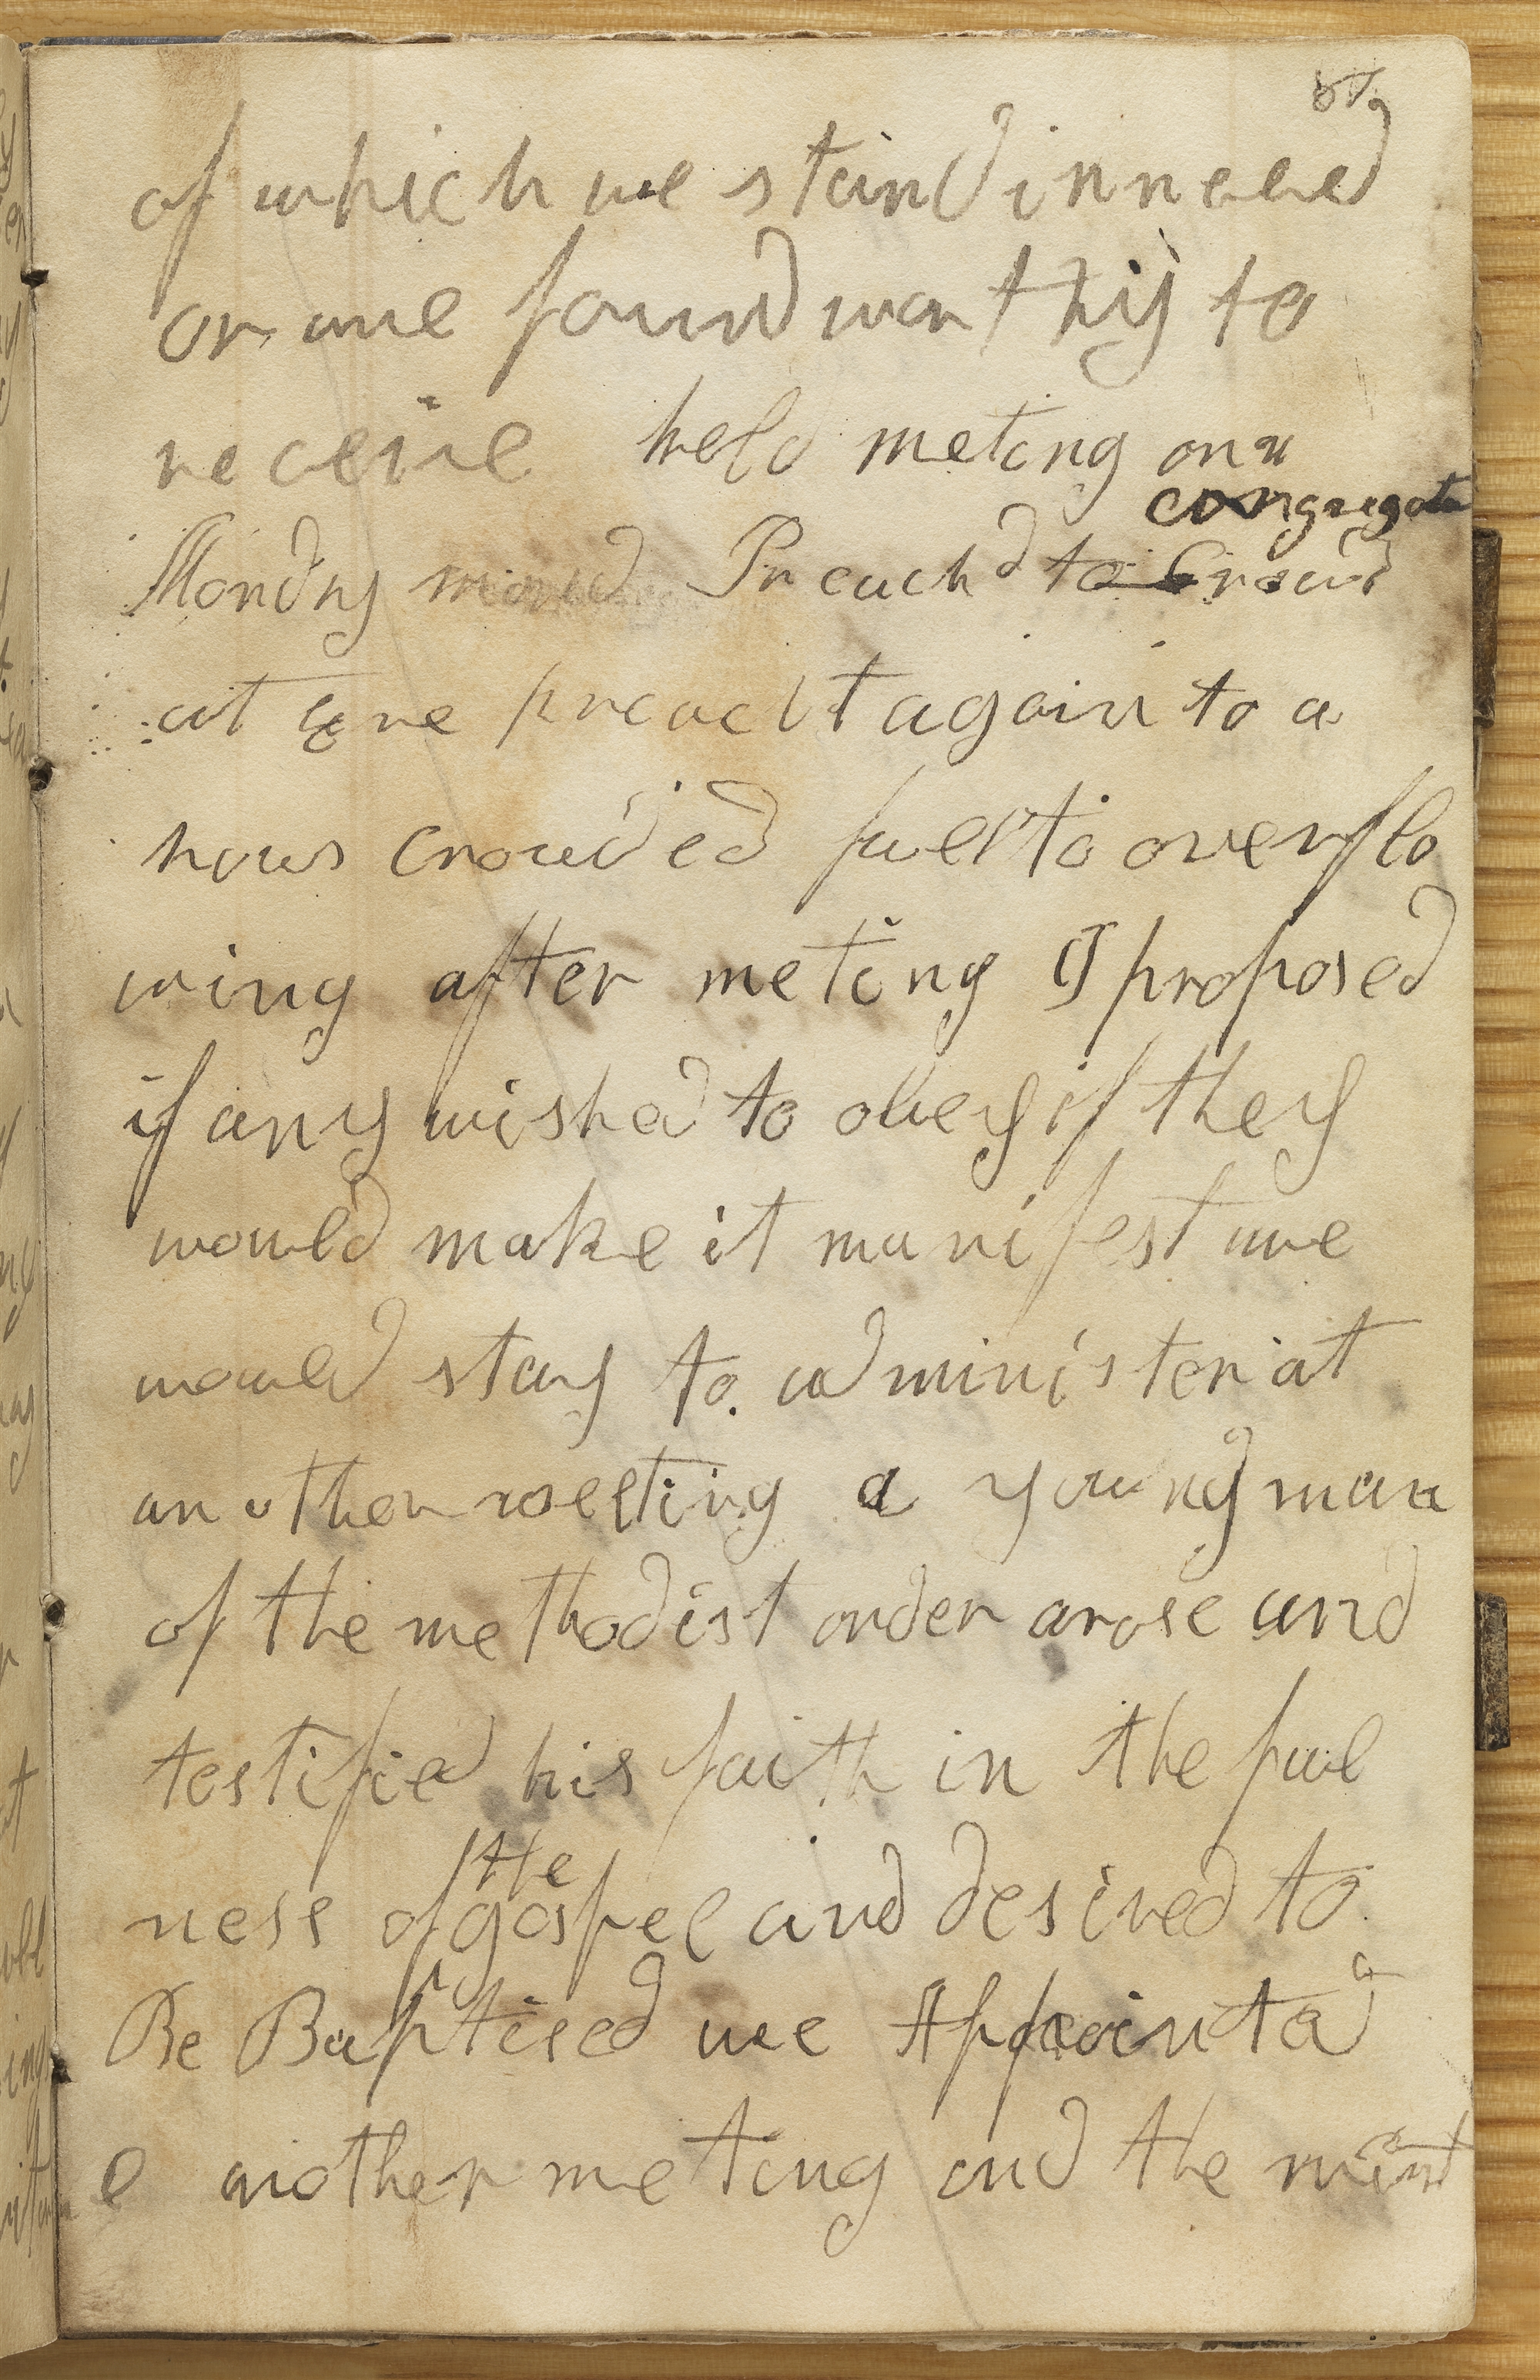 of which we stand in neeed
or we found worthy to
receive held meting on
congregate
Mondy Preachd to Crowd
at eve preacht again to a
hous Crowded full to overflo
wing after meting I proposed
if any wished to obey if they
would make it manifest we
would stay to administer at
another meeting a young man
of the methodist order arose and
testified his faith in the full
the
ness of gospel and desired to
Be Baptised we Appointed
another meting and the